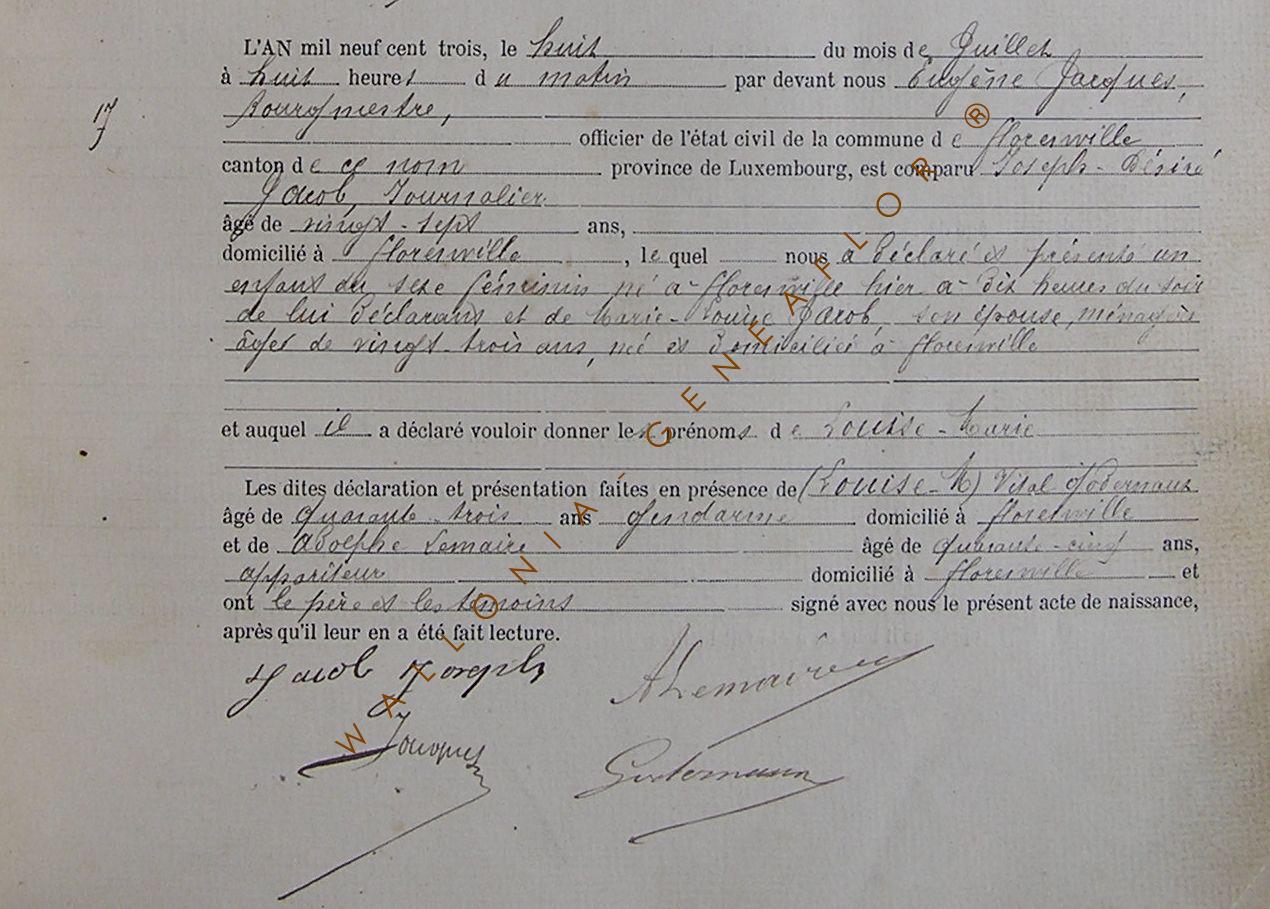 L'AN mil neuf cent trois, le huit du mois de Juillet
à huit heures du matin par devant nous Eugène Jacques,
17
Bourgmestre,
officier de l'état civil de la commune de Florenville
canton de ce nom province de Luxembourg, est comparu Joseph-Désiré
Jacob, Journalier
âgé de vingt-sept ans,
domicilié à Florenville, lequel nous a déclaré et présenté un
enfant du sexe féminin né à Florenville hier à dix heures du soir
de lui déclarant et de Marie-Louise Jacob, son épouse, ménagère
âgée de vingt-trois ans, née et domiciliée à Florenville
et auquel il a déclaré vouloir donner les prénoms de Louise-Marie
Les dites déclaration et présentation faites en présence de (Louise-M) Vital
âgé de quarante-trois ans gendarme domicilié à Florenville
et de Adolphe Lemaire âgé de quarante-cinq ans,
appariteur domicilié à Florenville et
ont le père et les témoins signé avec nous le présent acte de naissance,
après qu'il leur en a été fait lecture.
Jacob Joseph ALemaire
Jacques
WALLONIA GENEAFLOR®